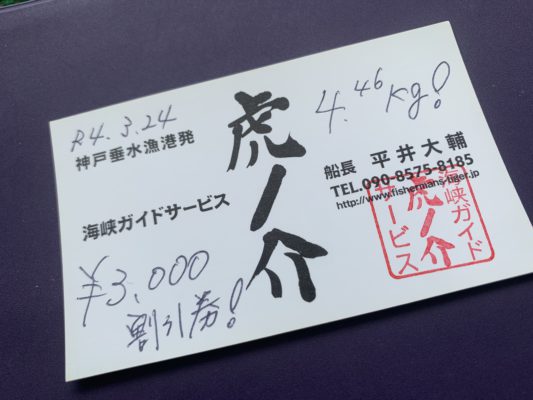 R4.3.24
神戸垂水漁港発
海峡ガイドサービス
¥3,000
割引券!
虎ノ介
4.46kg!
船長 平井大輔
TEL.090-8575-8185
http://www.fishermans-tiger.jp
海峡ガイド
虎ノ介
サービス